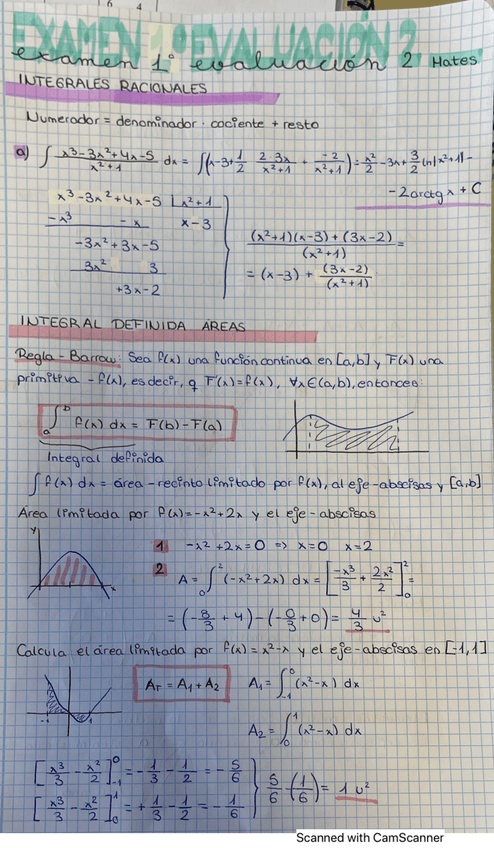 EXAMEN 1º EVALUACIÓN 2
examen 1º evaluación 2 Mates
INTEGRALES RACIONALES
Numerador = denominador · cociente + resto
a) ∫ (x³-3x²+4x-5)/(x²+1) dx = ∫(x-3+ 1/2 · 2·3x/(x²+1) + -2/(x²+1)) = x²/2 - 3x + 3/2 ln|x²+1| -
- 2arctg x + C
x³-3x²+4x-5 | x²+1
-x³ -x x-3
-3x²+3x-5
3x² 3
+3x-2
((x²+1)(x-3)+(3x-2))/(x²+1) =
= (x-3) + (3x-2)/(x²+1)
INTEGRAL DEFINIDA ÁREAS
Regla-Barrow: Sea f(x) una función continua en [a,b] y F(x) una
primitiva - f(x), es decir, q F'(x)=f(x), ∀x∈(a,b), entonces:
∫ₐᵇ f(x) dx = F(b)-F(a)
Integral definida
∫ f(x) dx = área - recinto limitado por f(x), al eje-abscisas y [a,b]
Área limitada por f(x)=-x²+2x y el eje-abscisas
y
1 -x²+2x=0 => x=0 x=2
2 A = ∫₀² (-x²+2x) dx = [-x³/3 + 2x²/2]₀² =
= (-8/3 + 4) - (-0/3 + 0) = 4/3 u²
Calcula el área limitada por f(x)=x²-x y el eje-abscisas en [-1,1]
-1 1
A_T = A₁ + A₂
A₁ = ∫₋₁⁰ (x²-x) dx
A₂ = ∫₀¹ (x²-x) dx
[x³/3 - x²/2]₋₁⁰ = -1/3 - 1/2 = -5/6
[x³/3 - x²/2]₀¹ = +1/3 - 1/2 = -1/6
5/6 - (1/6) = 1 u²
Scanned with CamScanner